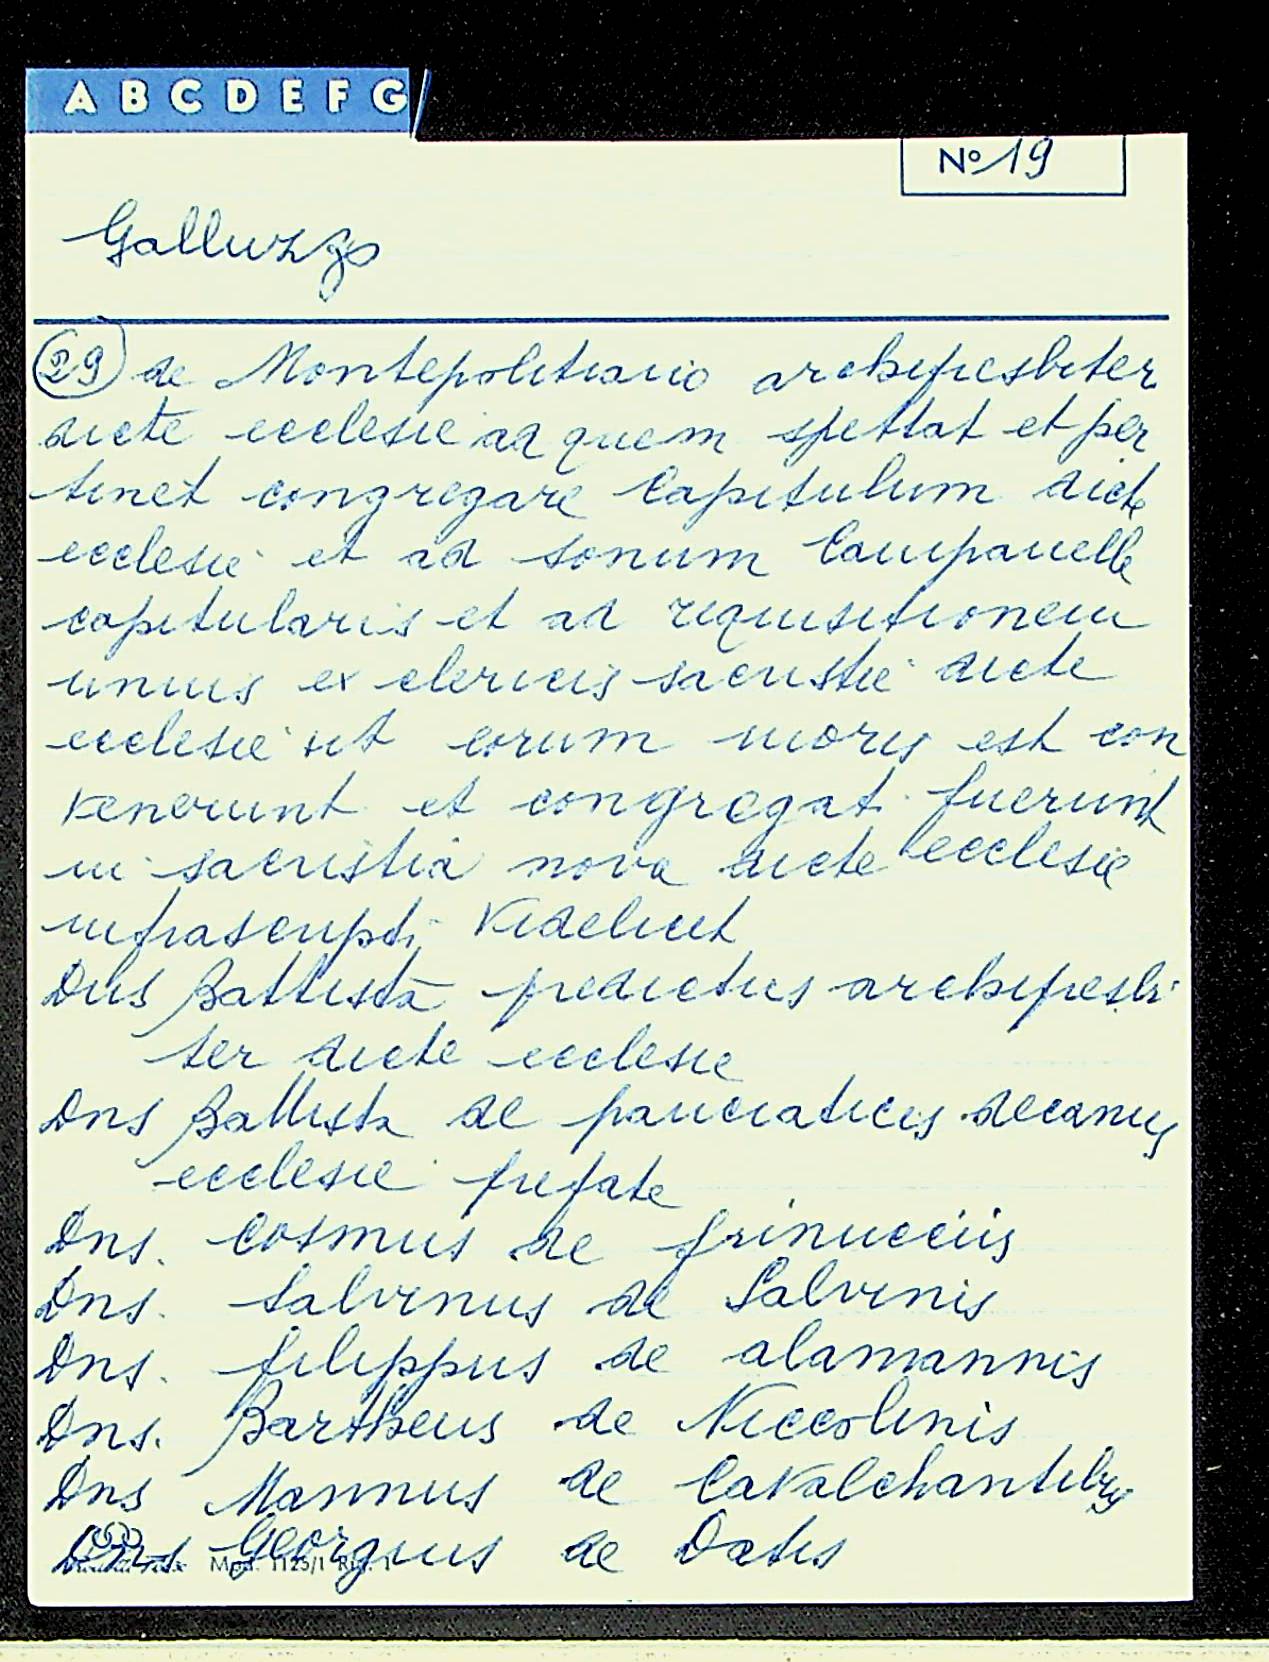 A B C D E F G
Nº 19
Galluzzo
(29) de Montepolitiano archipresbiter
dicte ecclesie ad quem spettat et per
tinet congregare Capitulum dicte
ecclesie et ad sonum Campanelle
capitularis et ad requisitionem
unius ex clericis sacristie dicte
ecclesie ut eorum moris est con
venerunt et congregat fuerunt
in sacristia nova dicte ecclesie
infrascripti videlicet
Dns Battista predictus archipresbi
ter dicte ecclesie
Dns Battista de panciaticis decanus
ecclesie prefate
Dns. Cosmus de frinucciis
Dns. Salvinus de Salvinis
Dns. filippus de alamannis
Dns. Bartheus de Niccolinis
Dns Mannus de Cavalchantibus
Dns Georgius de Datis
Mod. 1125/1